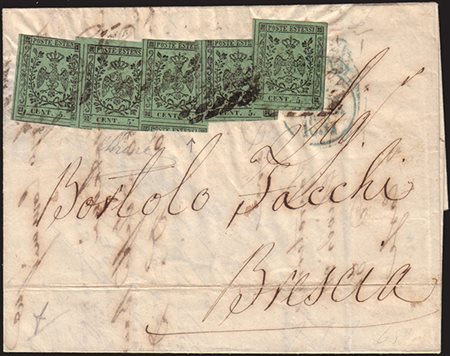 POSTE ESTENSI POSTE ESTENSI POSTE ESTENSI POSTE ESTENSI POSTE ESTENSI
CENT. 5. CENT. 5. CENT. 5. CENT. 5. CENT. 5.
Sig.
Bortolo Facchi
Brescia